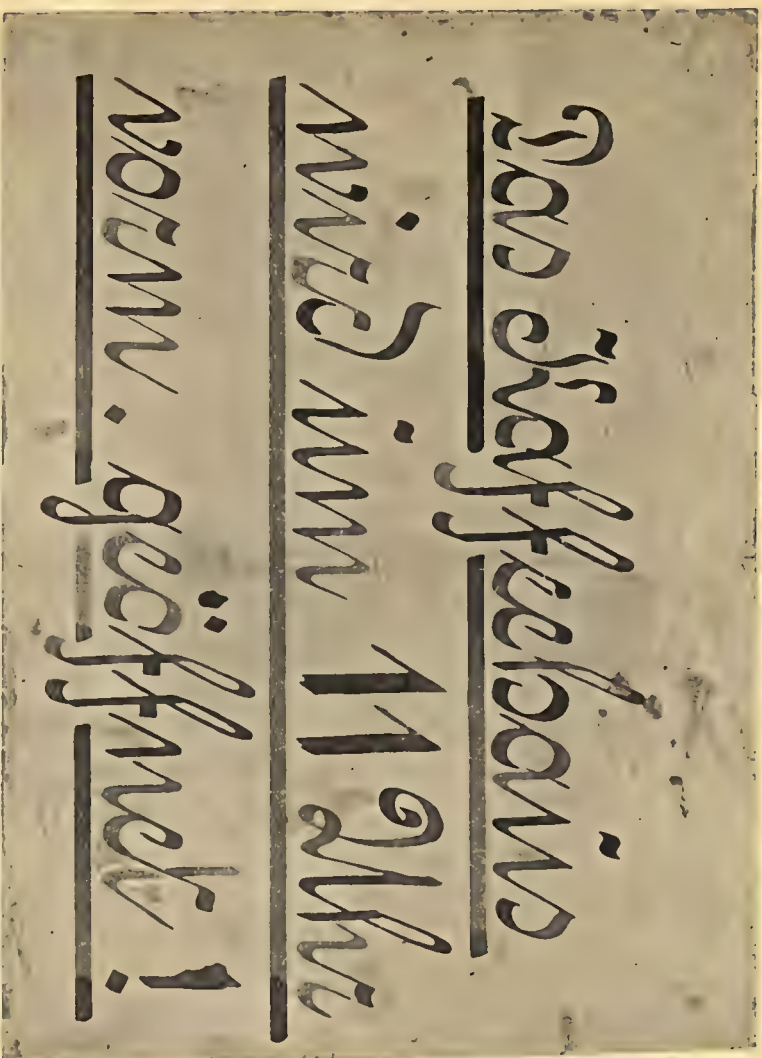 Das Kaffeehaus
wird um 11 Uhr
vorm. geöffnet!